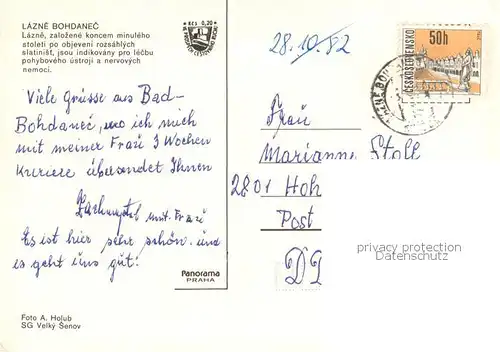 LÁZNĚ BOHDANEČ
Lázně, založené koncem minulého
století po objevení rozsáhlých
slatinišť, jsou indikovány pro léčbu
pohybového ústrojí a nervových
nemocí.
Kčs 0,20
28.10.82
50h
ČESKOSLOVENSKO
Viele Grüsse aus Bad-
Bohdaneč, wo ich mich
mit meiner Frau 3 Wochen
übersendet Ihnen
mit Frau
Es ist hier sehr schön und
es geht uns gut!
Frau
Marianne Stoll
2801 Hoh
Post
privacy protection
Datenschutz
Panorama
PRAHA
Foto A. Holub
SG Velký Šenov